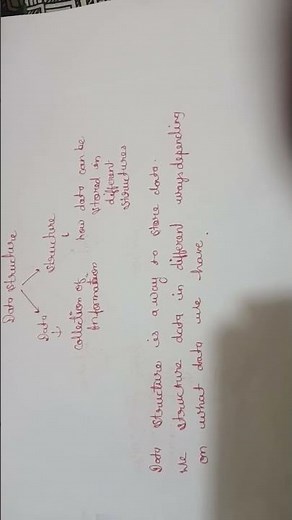 Data Structure
Data
Structure
collection of
Information
how data can be
stored in
different
structures
Data structure is a way to store data.
We structure data in different ways depending
on what data we have.